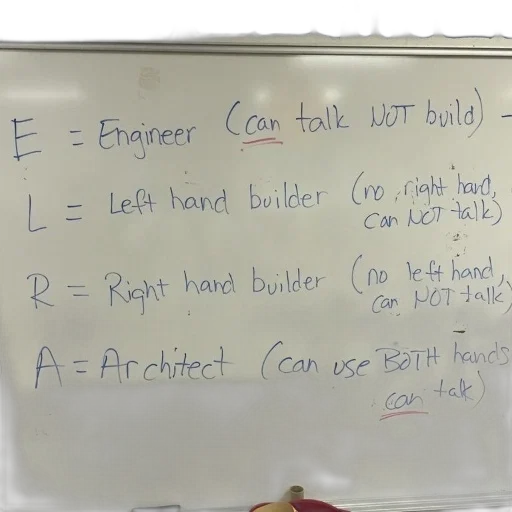 E = Engineer (can talk NOT build) -
L = Left hand builder (no right hand,
can NOT talk)
R = Right hand builder (no left hand,
can NOT talk)
A = Architect (can use BOTH hands
can talk)